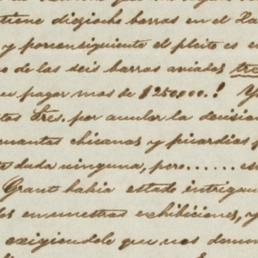 tiene dieziocho barras en el
y por consiguiente el pleito es en
de las seis barras aviadas
pagar mas de $250.000.! Y
tres. por anular la decision
chicanas y picardias
duda ninguna, pero...... es
Grant habia estado intrigan
en nuestras exhibiciones, y
exigiendole que nos